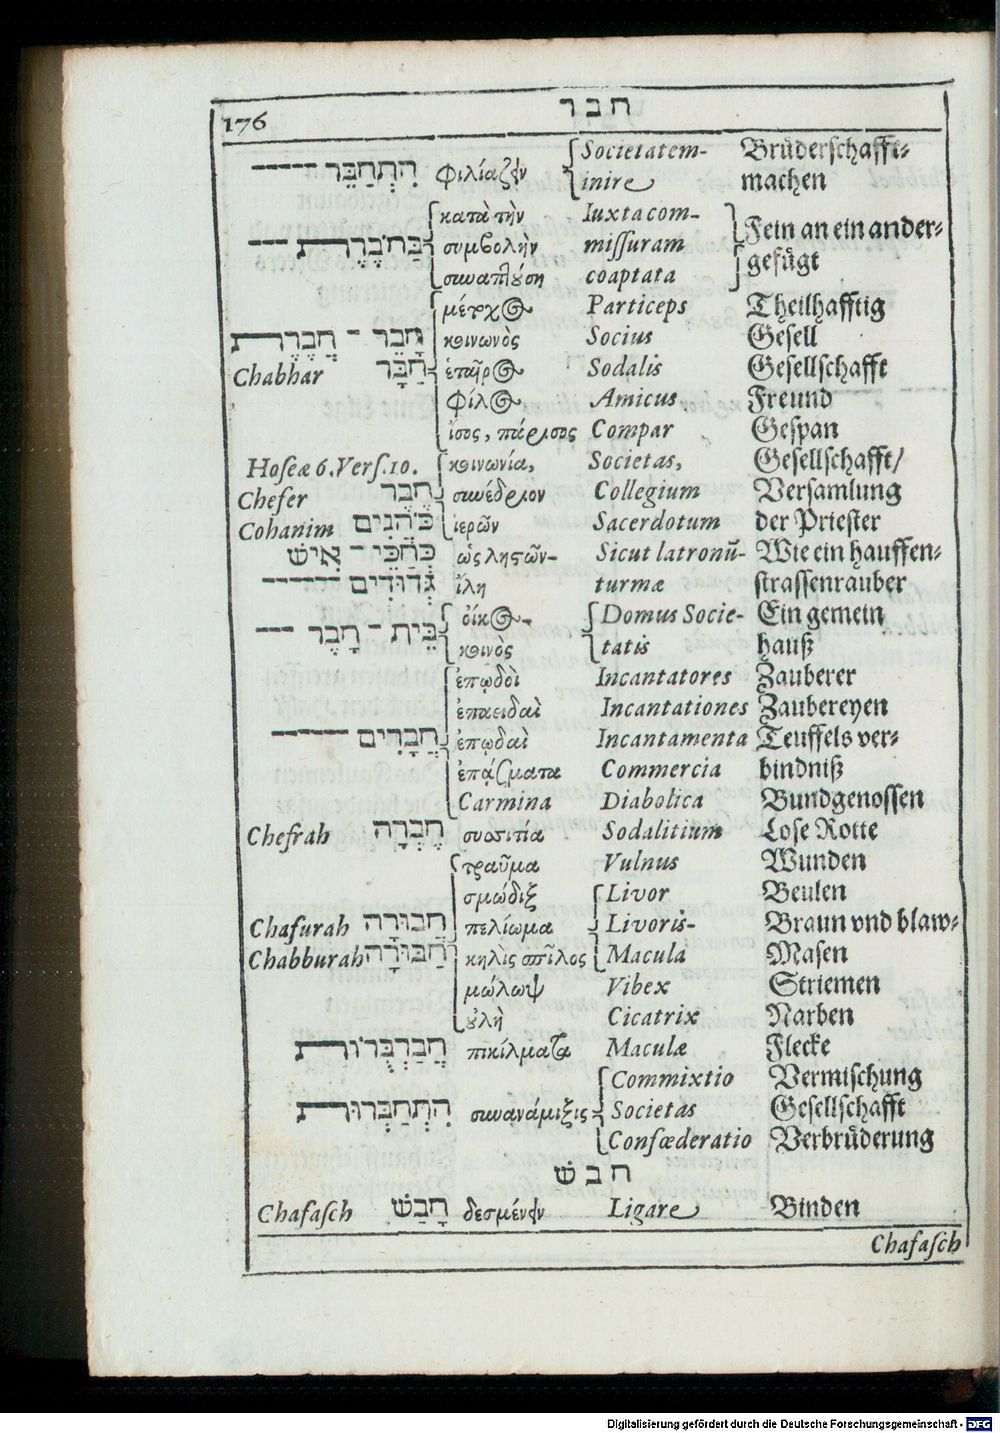 176 חבר
הִתְחַבֵּר φιλίαζειν Societatem- Brüderschafft-
inire machen
κατὰ τὴν Iuxta com- Fein an ein ander-
בַּחֹבֶרֶת συμβολὴν missuram gefügt
συναπτούση coaptata
μέτοχος Particeps Theilhafftig
חָבֵר - חֲבֶרֶת κοινωνὸς Socius Gesell
Chabhar חַבָּר ἑταῖρος Sodalis Gesellschafft
φίλος Amicus Freund
ἴσος, πάρισος Compar Gespan
Hoseæ 6. Vers. 10. κοινωνία, Societas, Gesellschafft/
Chefer חֶבֶר συνέδριον Collegium Versamlung
Cohanim כֹּהֲנִים ἱερῶν Sacerdotum der Priester
כְּחַכֵּי - אִישׁ ὡς λῃστῶν- Sicut latronū- Wie ein hauffen-
גְּדוּדִים ἴλη turmæ strassenrauber
οἶκος- Domus Socie- Ein gemein
בֵּית - חָבֶר κοινὸς tatis hauß
ἐπῳδοὶ Incantatores Zauberer
ἐπαειδαὶ Incantationes Zaubereyen
חֲבָרִים ἐπῳδαὶ Incantamenta Teuffels ver-
ἐπᾴσματα Commercia bindniß
Carmina Diabolica Bundgenossen
Chefrah חֶבְרָה συσσιτία Sodalitium Lose Rotte
τραῦμα Vulnus Wunden
σμώδιξ Livor Beulen
Chafurah חֲבוּרָה πελίωμα Livoris- Braun vnd blaw-
Chabburah חַבּוּרָה κηλὶς σπῖλος Macula Masen
μώλωψ Vibex Striemen
οὐλὴ Cicatrix Narben
חֲבַרְבֻּרוֹת ποικίλματα Maculæ Flecke
Commixtio Vermischung
הִתְחַבְּרוּת συνανάμιξις Societas Gesellschafft
Confœderatio Verbrüderung
חבשׁ
Chafasch חָבַשׁ δεσμέυειν Ligare Binden
Chafasch
Digitalisierung gefördert durch die Deutsche Forschungsgemeinschaft - DFG